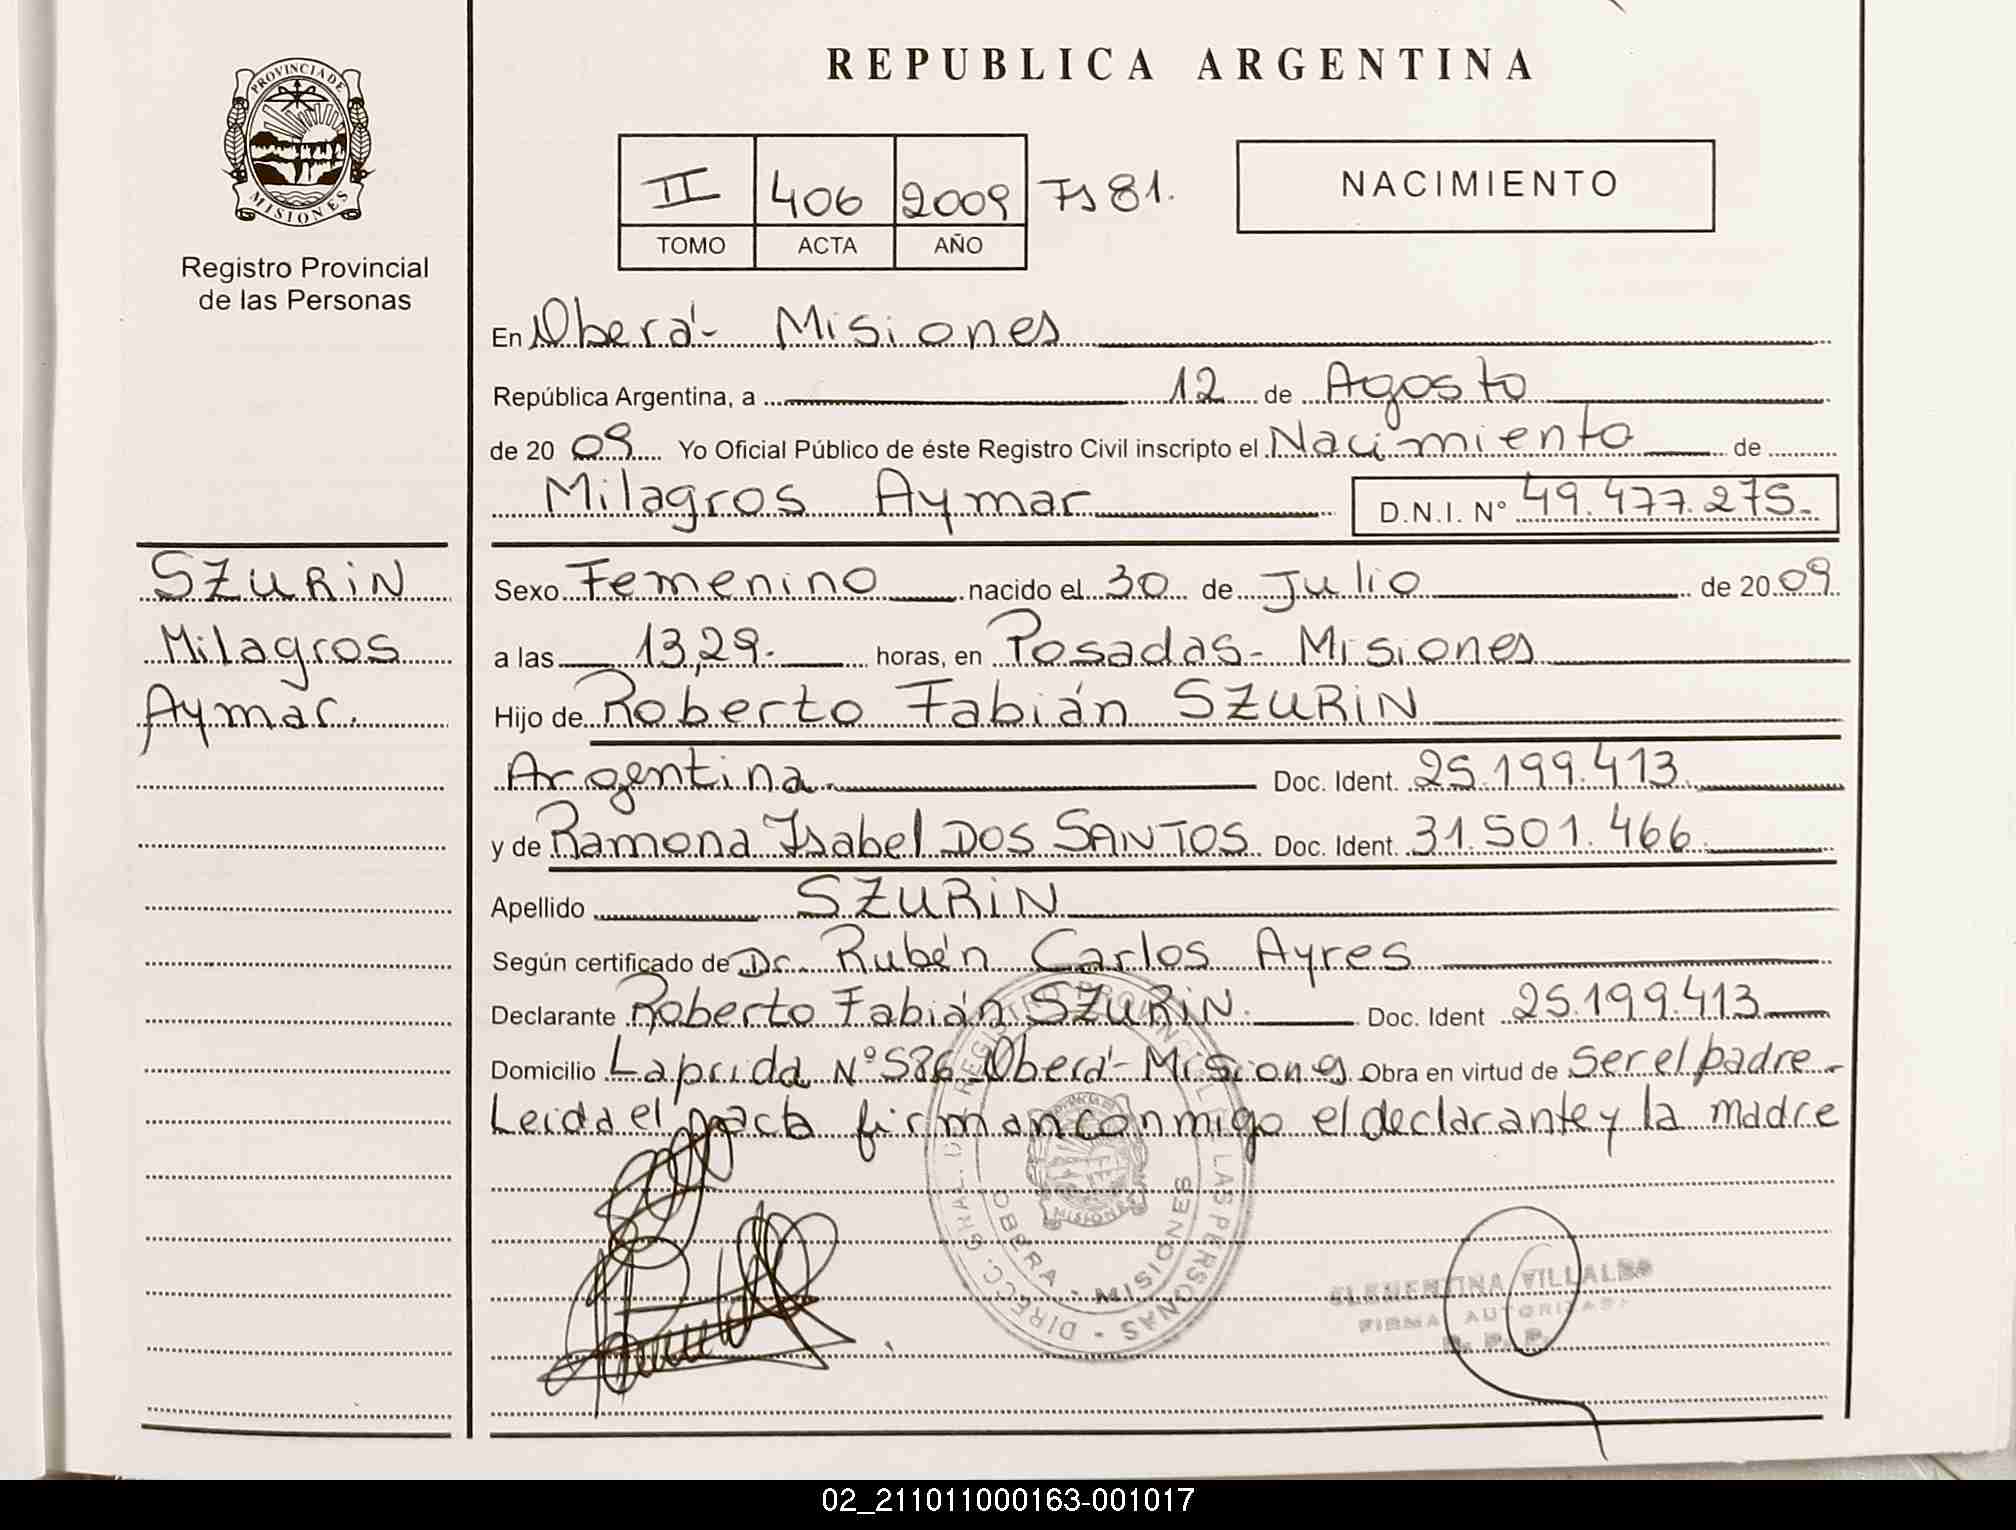 REPUBLICA ARGENTINA
PROVINCIA DE
MISIONES
Registro Provincial
de las Personas
II 406 2009 Fs 81.
TOMO ACTA AÑO
NACIMIENTO
En Oberá- Misiones
República Argentina, a 12 de Agosto
de 20 09 Yo Oficial Público de éste Registro Civil inscripto el Nacimiento de
Milagros Aymar D.N.I. N° 49.477.275.-
SZURIN
Milagros
Aymar.
Sexo Femenino nacido el 30 de Julio de 20 09
a las 13,29. horas, en Posadas- Misiones
Hijo de Roberto Fabián SZURIN
Argentina. Doc. Ident. 25.199.413.
y de Ramona Isabel DOS SANTOS Doc. Ident. 31.501.466
Apellido SZURIN
Según certificado de Dr. Rubén Carlos Ayres
Declarante Roberto Fabián SZURIN. Doc. Ident 25.199.413
Domicilio Laprida N° 586 Oberá- Misiones Obra en virtud de Ser el padre.-
Leida el acta firman conmigo el declarante y la madre
DIRECC. GRAL. D REGISTRO PROVINCIAL LAS PERSONAS
OBERA - MISIONES
MISIONES
CLEMENTINA VILLALBA
FIRMA AUTORIZADA
R. P. P.
02_211011000163-001017